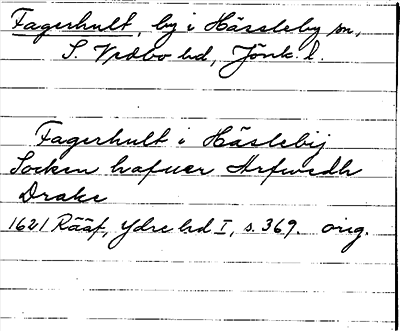 Fagerhult, by i Hässleby sn,
S. Vedbo hd, Jönk. l.
Fagerhult i Häslebij
Socken hafuer Arfwedh
Drake
1621 Rääf, Ydre hd I, s. 369. orig.